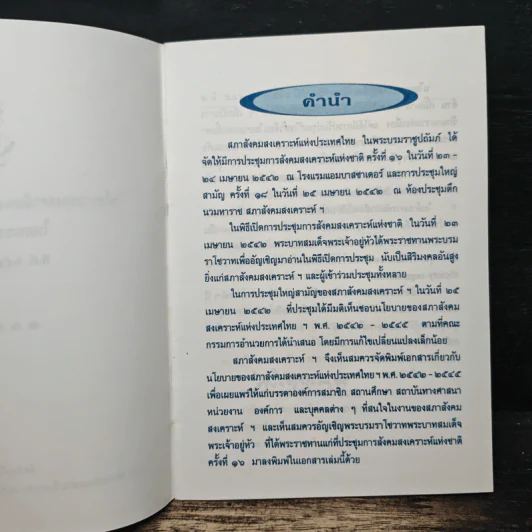 คำนำ
สภาสังคมสงเคราะห์แห่งประเทศไทย ในพระบรมราชูปถัมภ์ ได้
จัดให้มีการประชุมการสังคมสงเคราะห์แห่งชาติ ครั้งที่ ๑๖ ในวันที่ ๒๓ -
๒๔ เมษายน ๒๕๔๒ ณ โรงแรมแอมบาสซาเดอร์ และการประชุมใหญ่
สามัญ ครั้งที่ ๑๘ ในวันที่ ๒๕ เมษายน ๒๕๔๒ ณ ห้องประชุมตึก
นวมหาราช สภาสังคมสงเคราะห์ ฯ
ในพิธีเปิดการประชุมการสังคมสงเคราะห์แห่งชาติ ในวันที่ ๒๓
เมษายน ๒๕๔๒ พระบาทสมเด็จพระเจ้าอยู่หัวได้พระราชทานพระบรม
ราโชวาทเพื่ออัญเชิญมาอ่านในพิธีเปิดการประชุม นับเป็นสิริมงคลอันสูง
ยิ่งแก่สภาสังคมสงเคราะห์ ฯ และผู้เข้าร่วมประชุมทั้งหลาย
ในการประชุมใหญ่สามัญของสภาสังคมสงเคราะห์ ฯ ในวันที่ ๒๕
เมษายน ๒๕๔๒ ที่ประชุมได้มีมติเห็นชอบนโยบายของสภาสังคม
สงเคราะห์แห่งประเทศไทย ฯ พ.ศ. ๒๕๔๒ - ๒๕๔๕ ตามที่คณะ
กรรมการอำนวยการได้นำเสนอ โดยมีการแก้ไขเปลี่ยนแปลงเล็กน้อย
สภาสังคมสงเคราะห์ ฯ จึงเห็นสมควรจัดพิมพ์เอกสารเกี่ยวกับ
นโยบายของสภาสังคมสงเคราะห์แห่งประเทศไทย ฯ พ.ศ. ๒๕๔๒ - ๒๕๔๕
เพื่อเผยแพร่ให้แก่บรรดาองค์การสมาชิก สถานศึกษา สถาบันทางศาสนา
หน่วยงาน องค์การ และบุคคลต่าง ๆ ที่สนใจในงานของสภาสังคม
สงเคราะห์ ฯ และเห็นสมควรอัญเชิญพระบรมราโชวาทพระบาทสมเด็จ
พระเจ้าอยู่หัว ที่ได้พระราชทานแก่ที่ประชุมการสังคมสงเคราะห์แห่งชาติ
ครั้งที่ ๑๖ มาลงพิมพ์ในเอกสารเล่มนี้ด้วย